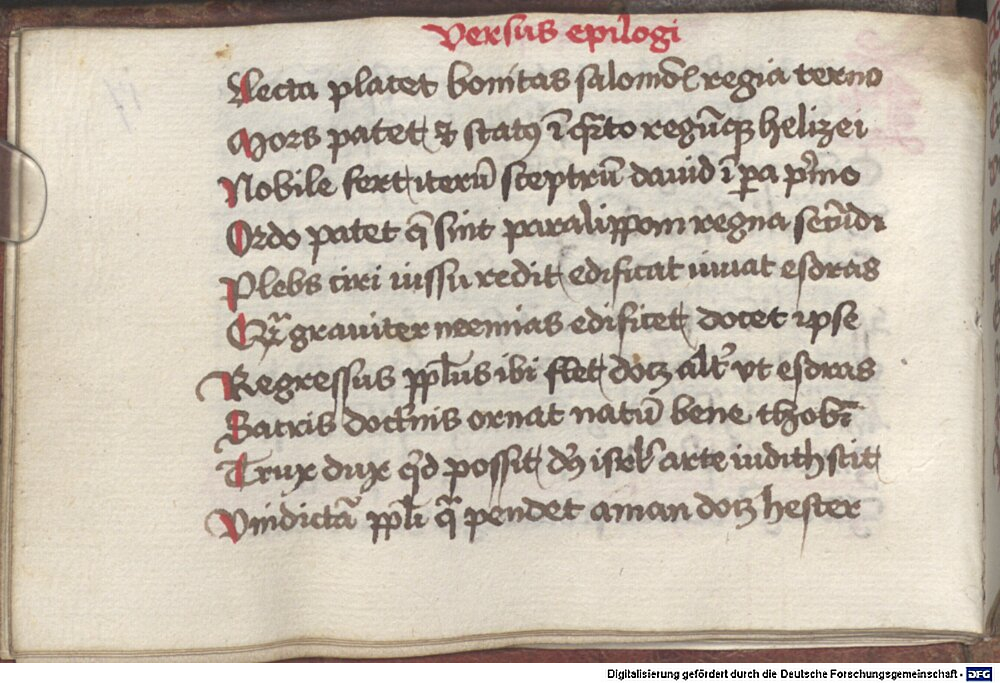 Versus epilogi
Lecta placet bonitas salomōis regia terno
Mors patet & statꝰ ī q̄rto regūqꝫ helizei
Nobile fert iterū sceptrū dauid ī ꝑa pͥmo
Ordo patet q̄ sint paralippom regna secūdi
Plebs ciri iussu redit edificat iuuat esdras
grauiter neemias edificet docet ipse
Regressus ppl̄us ibi docꝫ alt' vt esdras
Sacris doct'nis ornat natū bene thobī
Trux dux qͥd possit dꝰ isrl' arte iudith scit
Vindictā ppl̄i q̄ pendet aman docꝫ hester
Digitalisierung gefördert durch die Deutsche Forschungsgemeinschaft - DFG